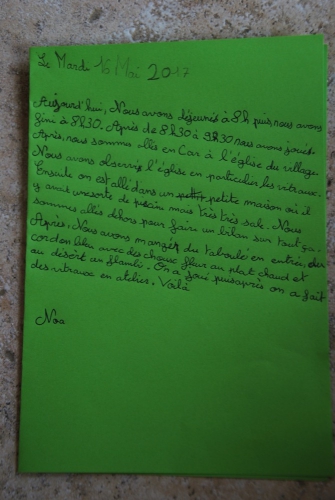 Le Mardi 16 Mai 2017
Aujourd'hui, Nous avons déjeunés à 8h puis nous avons
fini à 8h30. Après de 8h30 à 9h30 nous avons joués.
Après, nous somme allés en Car à l'église du village.
Nous avons observés l'église en particulier les vitraux.
Ensuite on est allé dans un petite maison où il
y avait une sorte de piscin mais très très sale. Nous
sommes allés dehors pour fair un bilan sur tout ça.
Après. Nous avons mangés du taboulé en entrée, du
cordon bleu avec des choux fleur au plat chaud et
au désert un flambi. On a joué puis après on a fait
des vitraux en atelier. Voilà
Noa